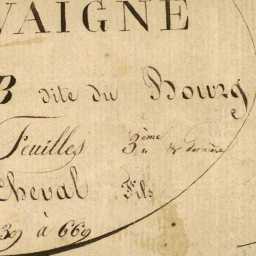 VAIGNE
B dite du Bourg
Feuilles 3ème & dernière
Cheval Fils
39 à 669